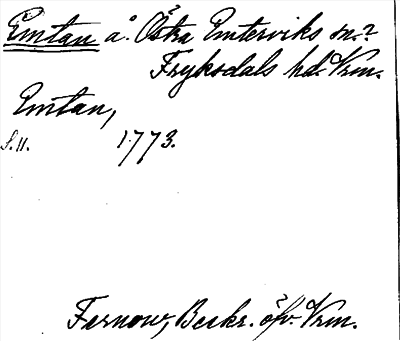 Emtan å. Östra Emterviks sn.?
Fryksdals hd. Vrm.
Emtan,
S. 11. 1773.
Fernow, Beskr. öfv. Vrm.